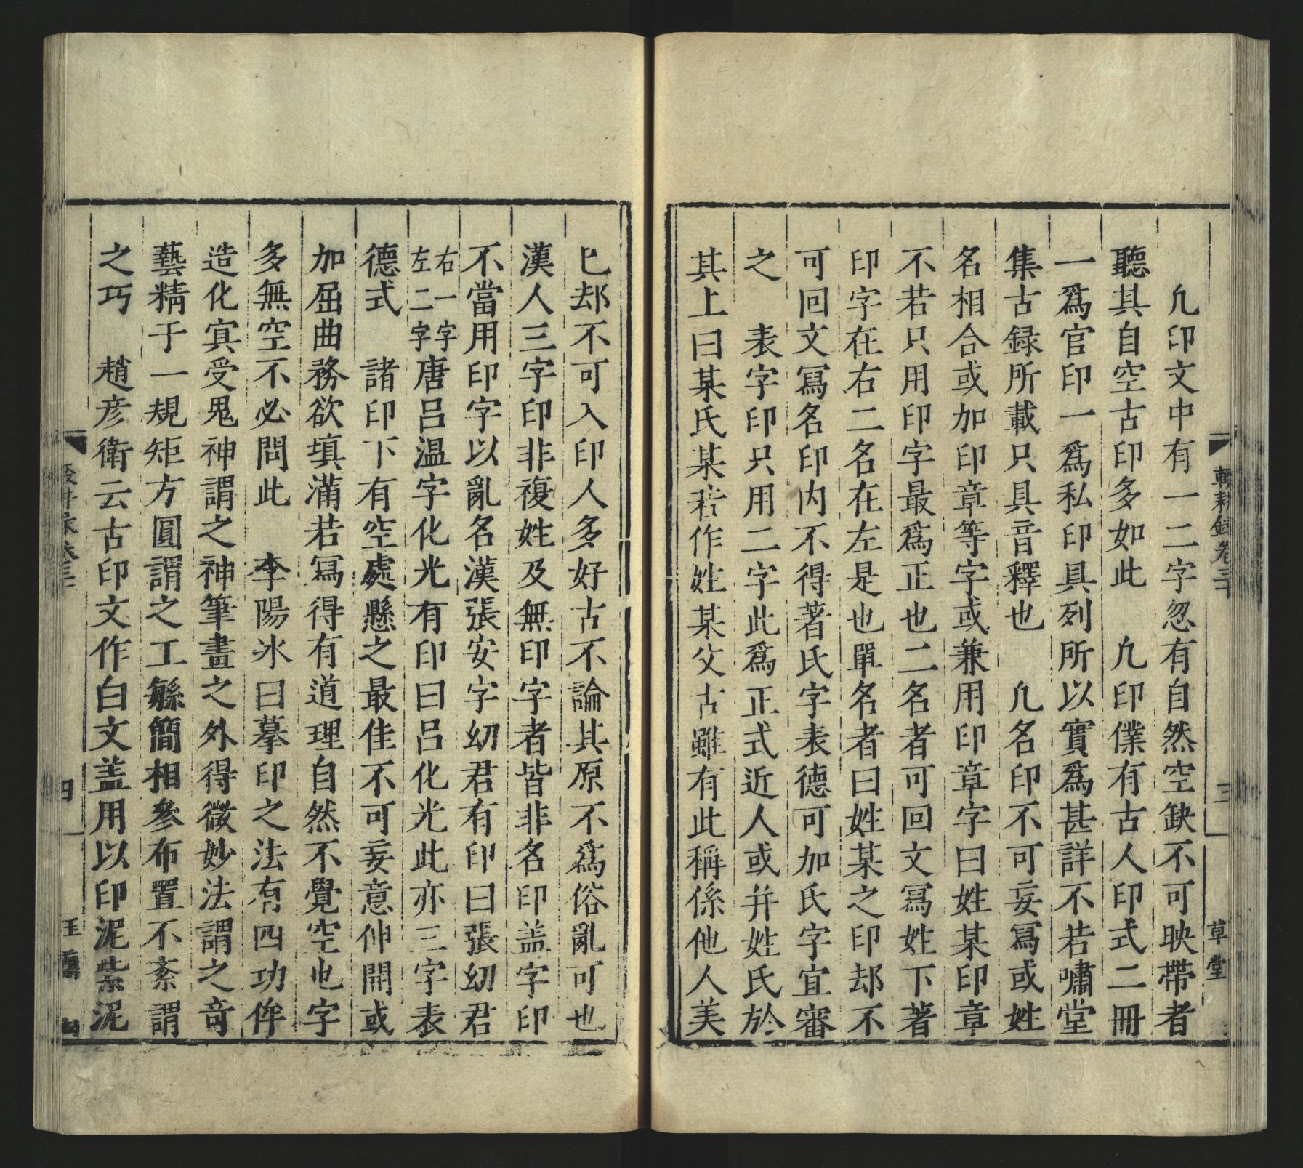 凢印文中有一二字忽有自然空缺不可映帶者
聽其自空古印多如此　凢印僕有古人印式二冊
一爲官印一爲私印具列所以實爲甚詳不若嘯堂
集古録所載只具音釋也　凢名印不可妄寫或姓
名相合或加印章等字或兼用印章字曰姓某印章
不若只用印字最爲正也二名者可回文寫姓下著
印字在右二名在左是也單名者曰姓某之印却不
可回文寫名印内不得著氏字表德可加氏字宜審
之　表字印只用二字此爲正式近人或并姓氏於
其上曰某氏某若作姓某父古雖有此稱係他人美
己却不可入印人多好古不論其原不爲俗亂可也
漢人三字印非複姓及無印字者皆非名印盖字印
不當用印字以亂名漢張安字幼君有印曰張幼君
右一字
左二字
唐吕温字化光有印曰吕化光此亦三字表
德式　諸印下有空處懸之最佳不可妄意伸開或
加屈曲務欲填滿若寫得有道理自然不覺空也字
多無空不必問此　李陽冰曰摹印之法有四功侔
造化㝠受鬼神謂之神筆畫之外得微妙法謂之竒
藝精于一規矩方圓謂之工緐簡相參布置不紊謂
之巧　趙彦衛云古印文作白文盖用以印泥紫泥
輟耕録卷三十
三
草堂
四
玉蘭